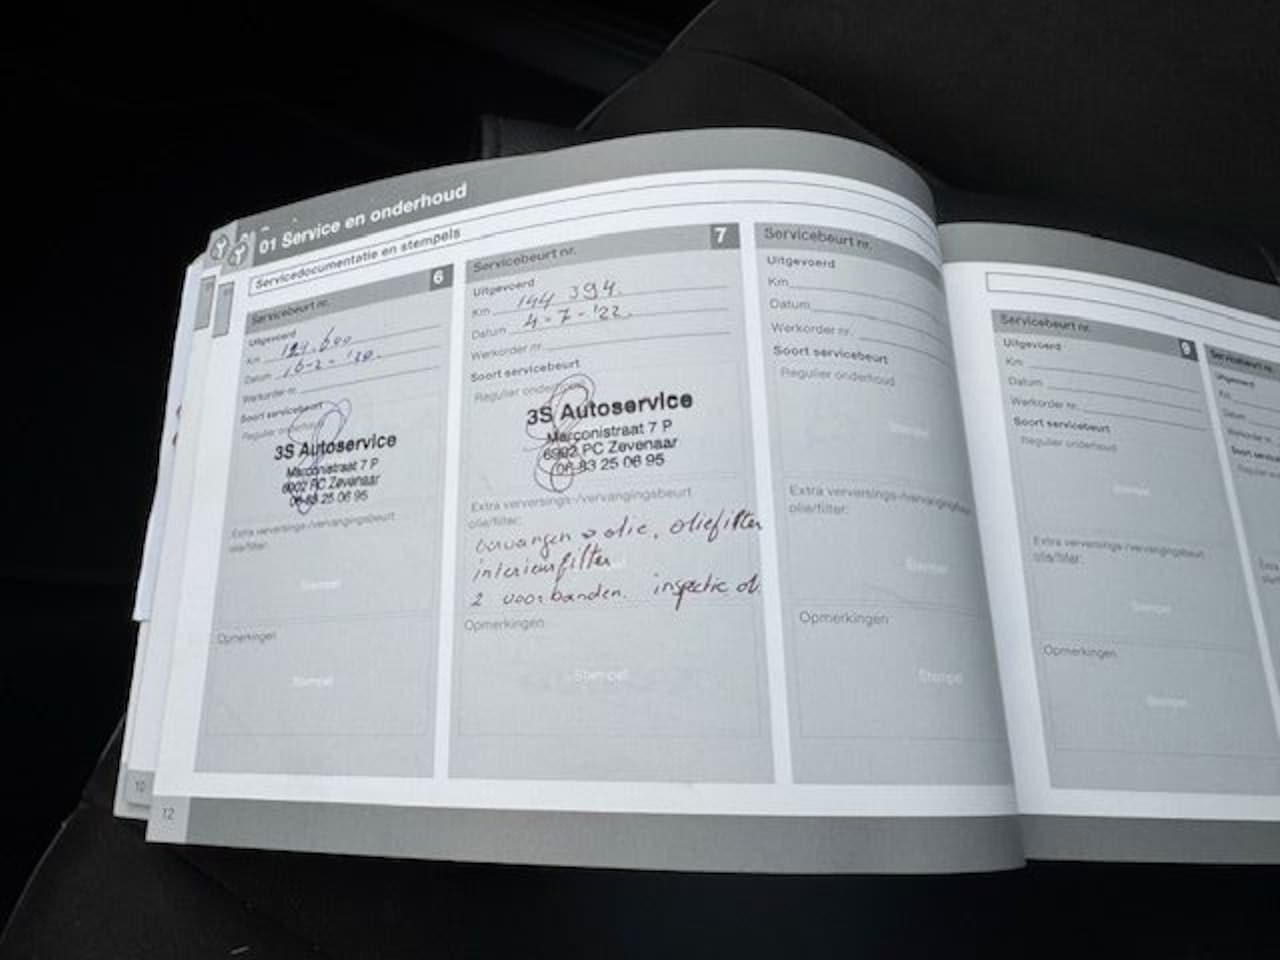 01 Service en onderhoud
Servicedocumentatie en stempels
Servicebeurt nr. 6
Uitgevoerd
Km
Datum 16-2-'20.
Werkorder nr.
Soort servicebeurt
Regulier onderhoud
3S Autoservice
Marconistraat 7 P
6902 PC Zevenaar
06-83 25 06 95
Extra verversings-/vervangingsbeurt
olie/filter:
Stempel
Opmerkingen
Stempel
Servicebeurt nr. 7
Uitgevoerd
Km 144 394.
Datum 4-7-'22.
Werkorder nr.
Soort servicebeurt
Regulier onderhoud
3S Autoservice
Marconistraat 7 P
6902 PC Zevenaar
06-83 25 06 95
Extra verversings-/vervangingsbeurt
olie/filter:
olie, oliefilter
interieurfilter
2 voorbanden. inspectie
Opmerkingen
Stempel
Servicebeurt nr.
Uitgevoerd
Km
Datum
Werkorder nr.
Soort servicebeurt
Regulier onderhoud
Stempel
Extra verversings-/vervangingsbeurt
olie/filter:
Stempel
Opmerkingen
Stempel
Servicebeurt nr. 9
Uitgevoerd
Km
Datum
Werkorder nr.
Soort servicebeurt
Regulier onderhoud
Stempel
Extra verversings-/vervangingsbeurt
olie/filter:
Stempel
Opmerkingen
Stempel
Servicebeurt nr.
Uitgevoerd
Km
Datum
Werkorder nr.
10
12